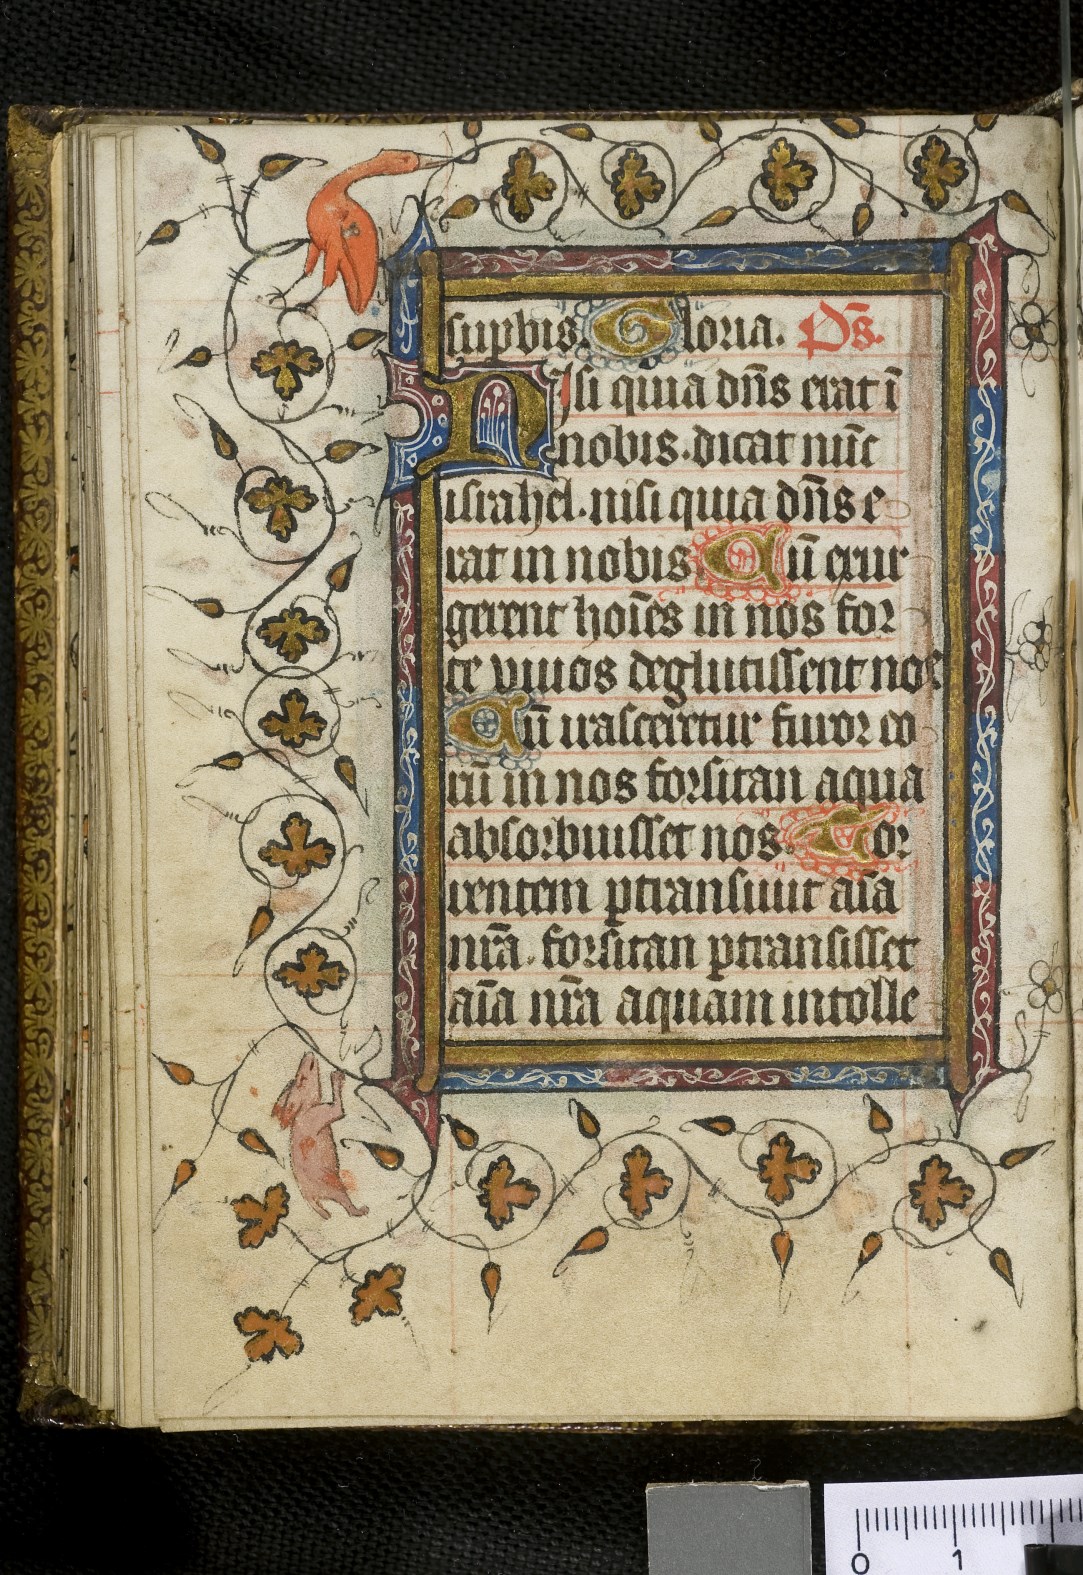 supbis. Gloria. Ps̄.
Nisi quia dn̄s erat ī
nobis. dicat nūc
israhel. nisi quia dn̄s e
rat in nobis Cū exur
gerent hoīes in nos for
te viuos deglutissent nos
Cū irasceretur furor eo
rū in nos forsitan aqua
absorbuisset nos Tor
rentem ptransiuit aīa
nr̄a. forsitan ptransisset
aīa nr̄a aquam intolle
0 1